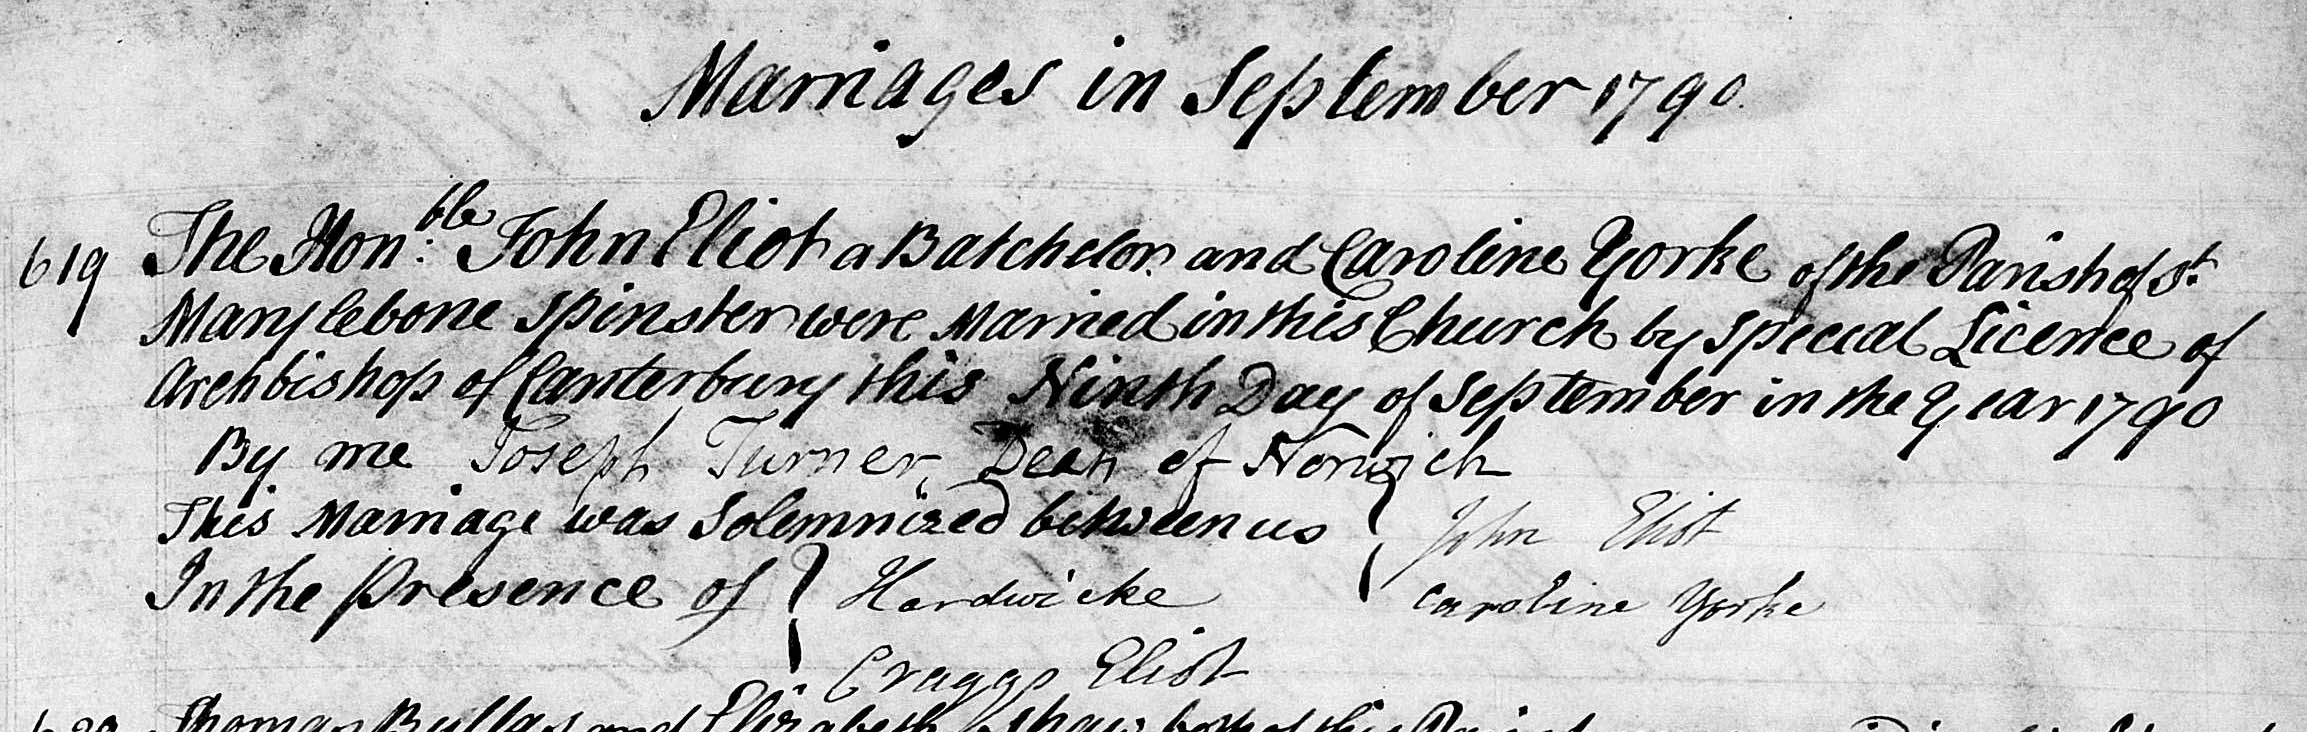 Marriages in September 1790.
619 The Hon:ble John Eliot a Batchelor and Caroline Yorke of the Parish of St.
Marylebone Spinster were Married in this Church by Special Licence of
Archbishop of Canterbury this Ninth Day of September in the Year 1790
By me Joseph Turner, Dean of Norwich
This Marriage was Solemnized between us { John Eliot
Caroline Yorke
In the Presence of { Hardwicke
Craggs Eliot
Thomas and Elizabeth Shaw both of this